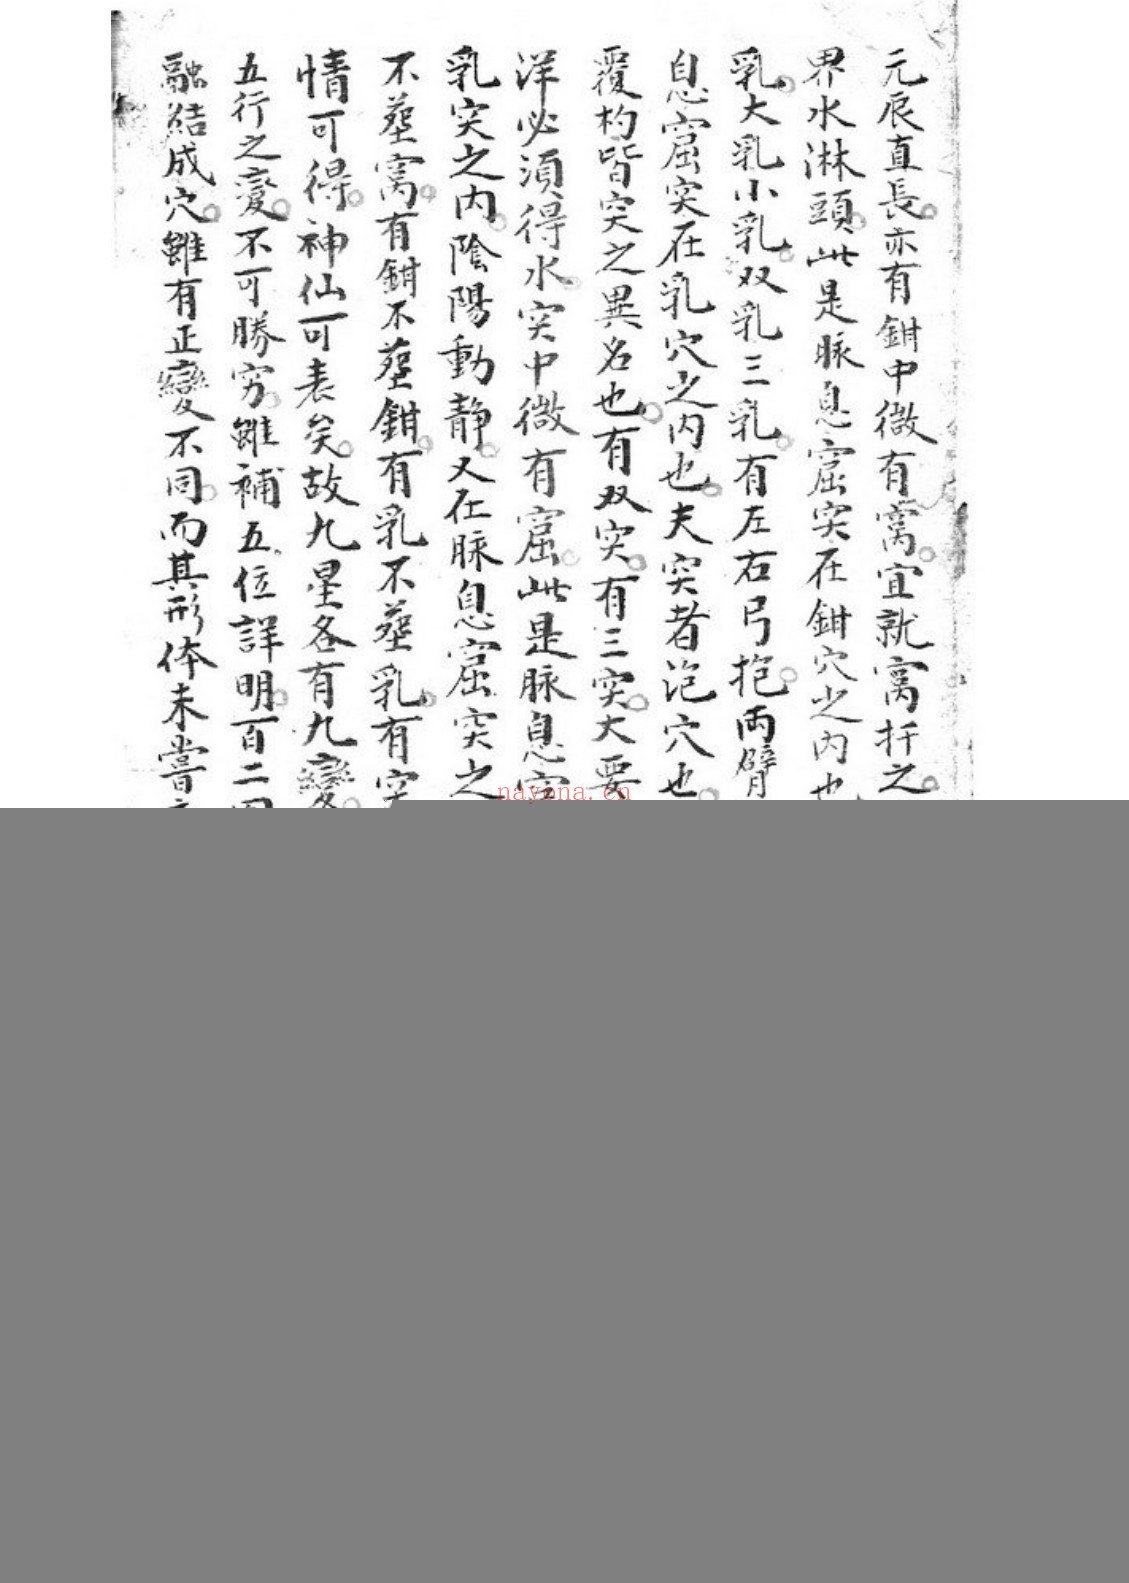 元辰直長亦有鉗中微有窩宜就窩扦之
界水淋頭此是脉息窟突在鉗穴之内也
乳大乳小乳双乳三乳有左右弓抱両臂
息窟突在乳穴之内也夫突者泡穴也
覆杓皆突之異名也有双突有三突大要
洋必須得水突中微有窟此是脉息窟
乳突之内陰陽動静又在脉息窟突之
不塟窩有鉗不塟鉗有乳不塟乳有突
情可得神仙可表矣故九星各有九變
五行之變不可勝穷雖補五位詳明百二
融結成穴雖有正變不同而其形体未嘗
nayona.cn